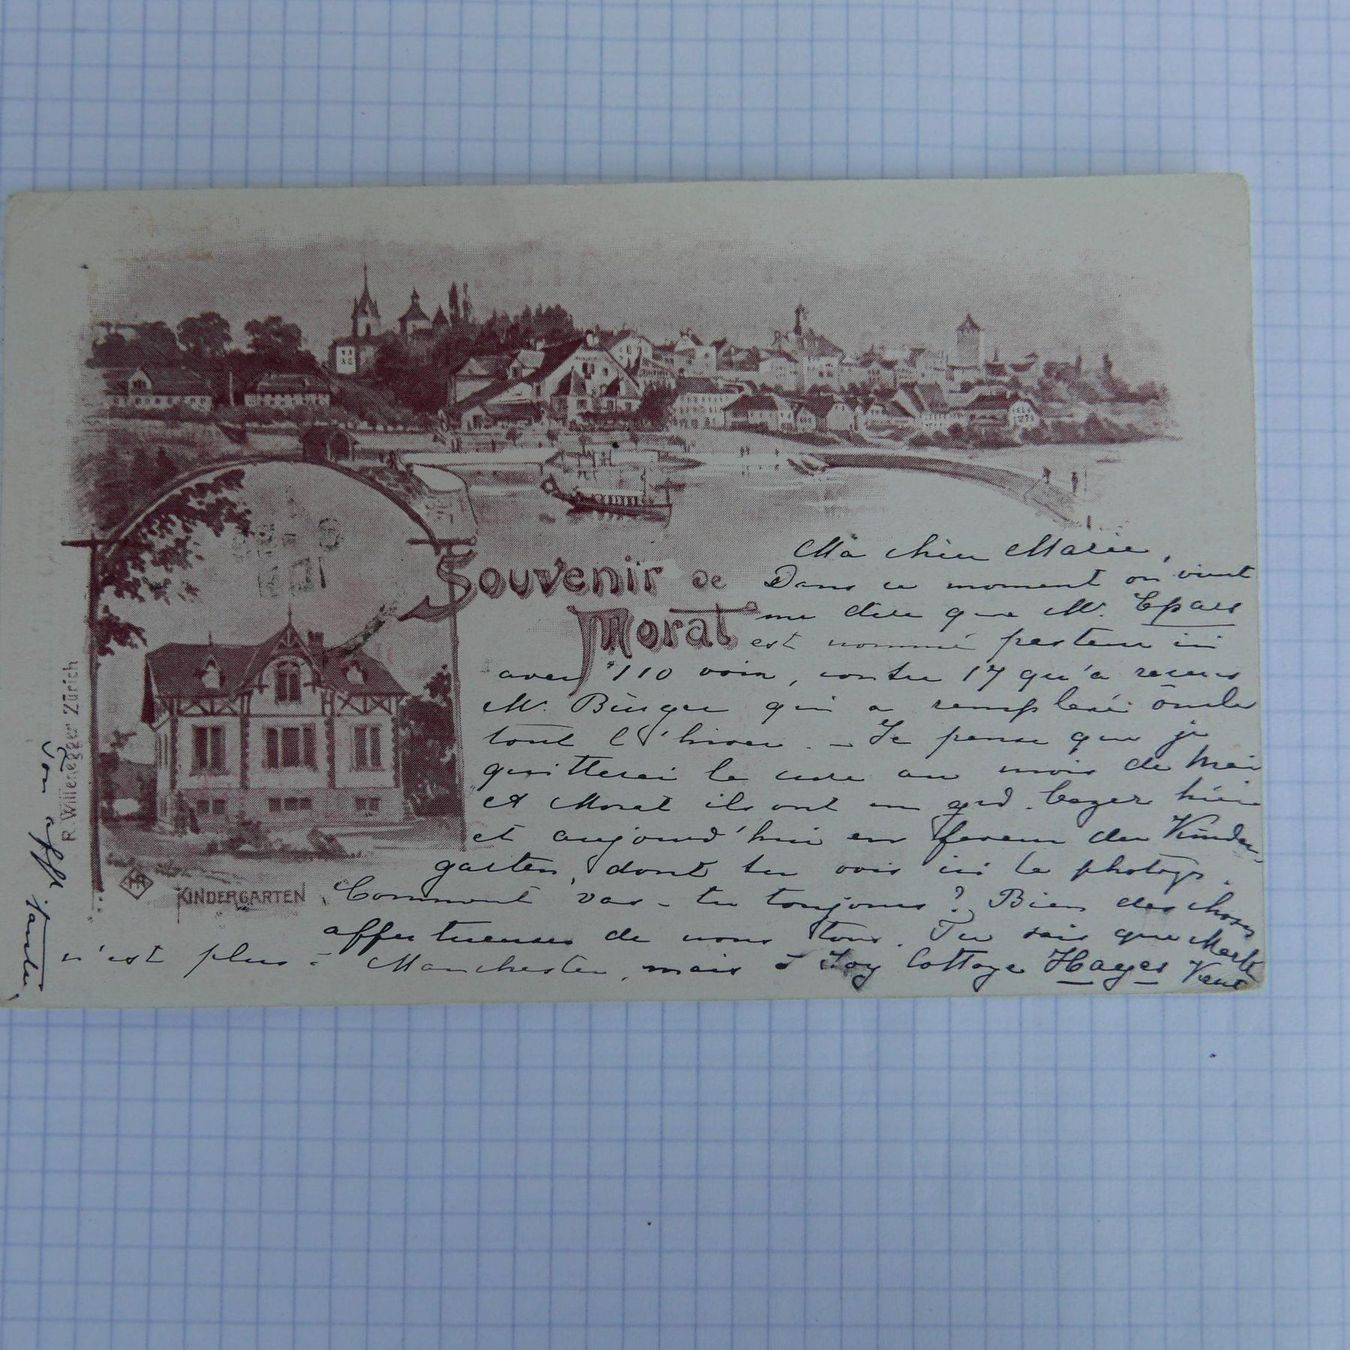 Souvenir de
Morat
KINDERGARTEN
R. Willenegger Zürich
Ma chère Marie,
Dans ce moment on vient
me dire que Mr.
est nommé pasteur ici
avec 110 voix, contre 17 qu'a reçus
Mr. Bürger qui a remplacé oncle
tout l'hiver. - Je pense que je
quitterai la cure au mois de Mai
A Morat ils ont un grd. bazar hier
et aujourd'hui en faveur du Kinder-
garten, dont tu vois ici la photogr.
Comment vas-tu toujours? Bien des choses
affectueuses de nous tous. Tu sais que
n'est plus à Manchester, mais à Cottage Hayes Kent
Ton affte